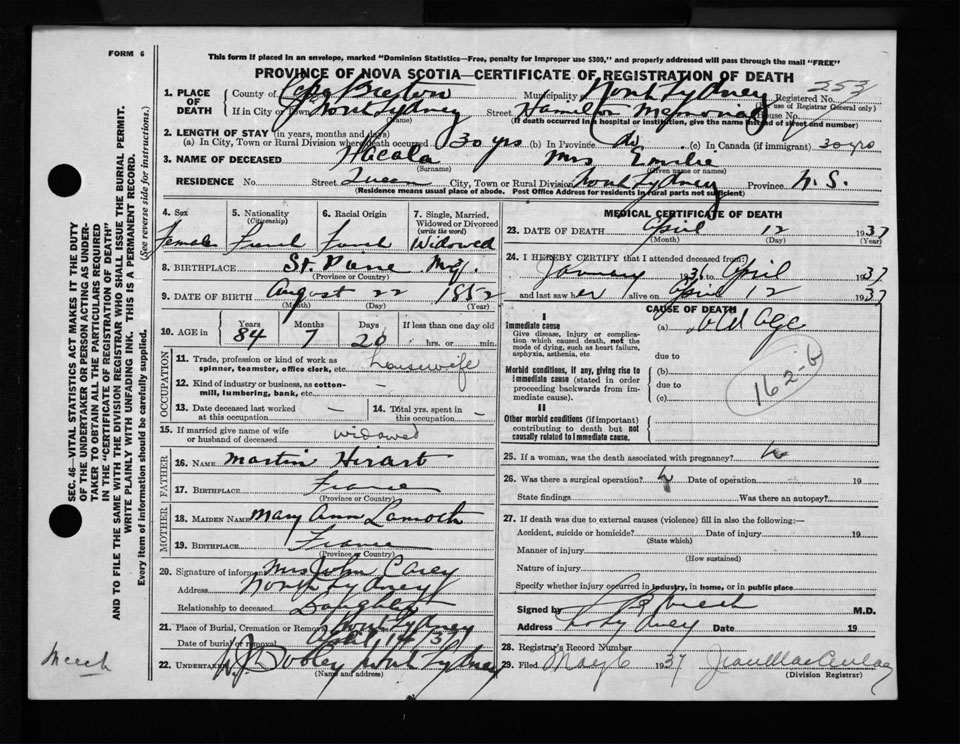 FORM 6
This form if placed in an envelope, marked "Dominion Statistics—Free, penalty for improper use $300," and properly addressed will pass through the mail "FREE"
PROVINCE OF NOVA SCOTIA—CERTIFICATE OF REGISTRATION OF DEATH
SEC. 46—VITAL STATISTICS ACT MAKES IT THE DUTY
OF THE UNDERTAKER OR PERSON ACTING AS UNDER-
TAKER TO OBTAIN ALL THE PARTICULARS REQUIRED
IN THE "CERTIFICATE OF REGISTRATION OF DEATH"
AND TO FILE THE SAME WITH THE DIVISION REGISTRAR WHO SHALL ISSUE THE BURIAL PERMIT.
WRITE PLAINLY WITH UNFADING INK. THIS IS A PERMANENT RECORD.
Every item of information should be carefully supplied. (See reverse side for instructions.)
1. PLACE OF DEATH County of Cape Breton Municipality of North Sydney Registered No. 253
(use of Registrar General only)
If in City or Town North Sydney Street Hamilton Memorial House No.
(Name) (If death occurred in a hospital or institution, give the name instead of street and number)
2. LENGTH OF STAY (in years, months and days)
(a) In City, Town or Rural Division where death occurred 30 yrs (b) In Province do (c) In Canada (if immigrant) 30 yrs
3. NAME OF DECEASED Mrs Emilie
(Surname) (Given name or names)
RESIDENCE No. Street Queen City, Town or Rural Division North Sydney Province N. S.
(Residence means usual place of abode. Post Office Address for residents in rural parts not sufficient)
4. Sex 5. Nationality (Citizenship) 6. Racial Origin 7. Single, Married, Widowed or Divorced (write the word)
Female French French Widowed
8. BIRTHPLACE St. Pierre Miq.
(Province or Country)
9. DATE OF BIRTH August 22 1852
(Month) (Day) (Year)
10. AGE in Years Months Days If less than one day old
84 7 20 hrs. or min.
OCCUPATION
11. Trade, profession or kind of work as spinner, teamster, office clerk, etc. housewife
12. Kind of industry or business, as cotton-mill, lumbering, bank, etc. —
13. Date deceased last worked at this occupation — 14. Total yrs. spent in this occupation —
15. If married give name of wife or husband of deceased widowed
FATHER
16. NAME Martin
17. BIRTHPLACE France
(Province or Country)
MOTHER
18. MAIDEN NAME Mary Ann
19. BIRTHPLACE France
(Province or Country)
20. Signature of informant Mrs John Carey
Address North Sydney
Relationship to deceased Daughter
21. Place of Burial, Cremation or Removal North Sydney
Date of burial or removal April 14 37
22. Undertaker W. J. Dooley North Sydney
(Name and address)
MEDICAL CERTIFICATE OF DEATH
23. DATE OF DEATH April 12 1937
(Month) (Day) (Year)
24. I HEREBY CERTIFY that I attended deceased from:
January 193 to April 1937
and last saw her alive on April 12 1937
CAUSE OF DEATH
I
Immediate cause (a) old age
Give disease, injury or complication which caused death, not the mode of dying, such as heart failure, asphyxia, asthenia, etc
due to
Morbid conditions, if any, giving rise to immediate cause (stated in order proceeding backwards from immediate cause). (b)
due to
(c)
162-b
II
Other morbid conditions (if important) contributing to death but not causally related to immediate cause.
25. If a woman, was the death associated with pregnancy?
26. Was there a surgical operation? Date of operation 19
State findings Was there an autopsy?
27. If death was due to external causes (violence) fill in also the following:—
Accident, suicide or homicide? Date of injury 19
(State which)
Manner of injury
(How sustained)
Nature of injury
Specify whether injury occurred in industry, in home, or in public place
Signed by M.D.
Address No Sydney Date 19
28. Registrar's Record Number
29. Filed May 6 1937
(Division Registrar)
Meech